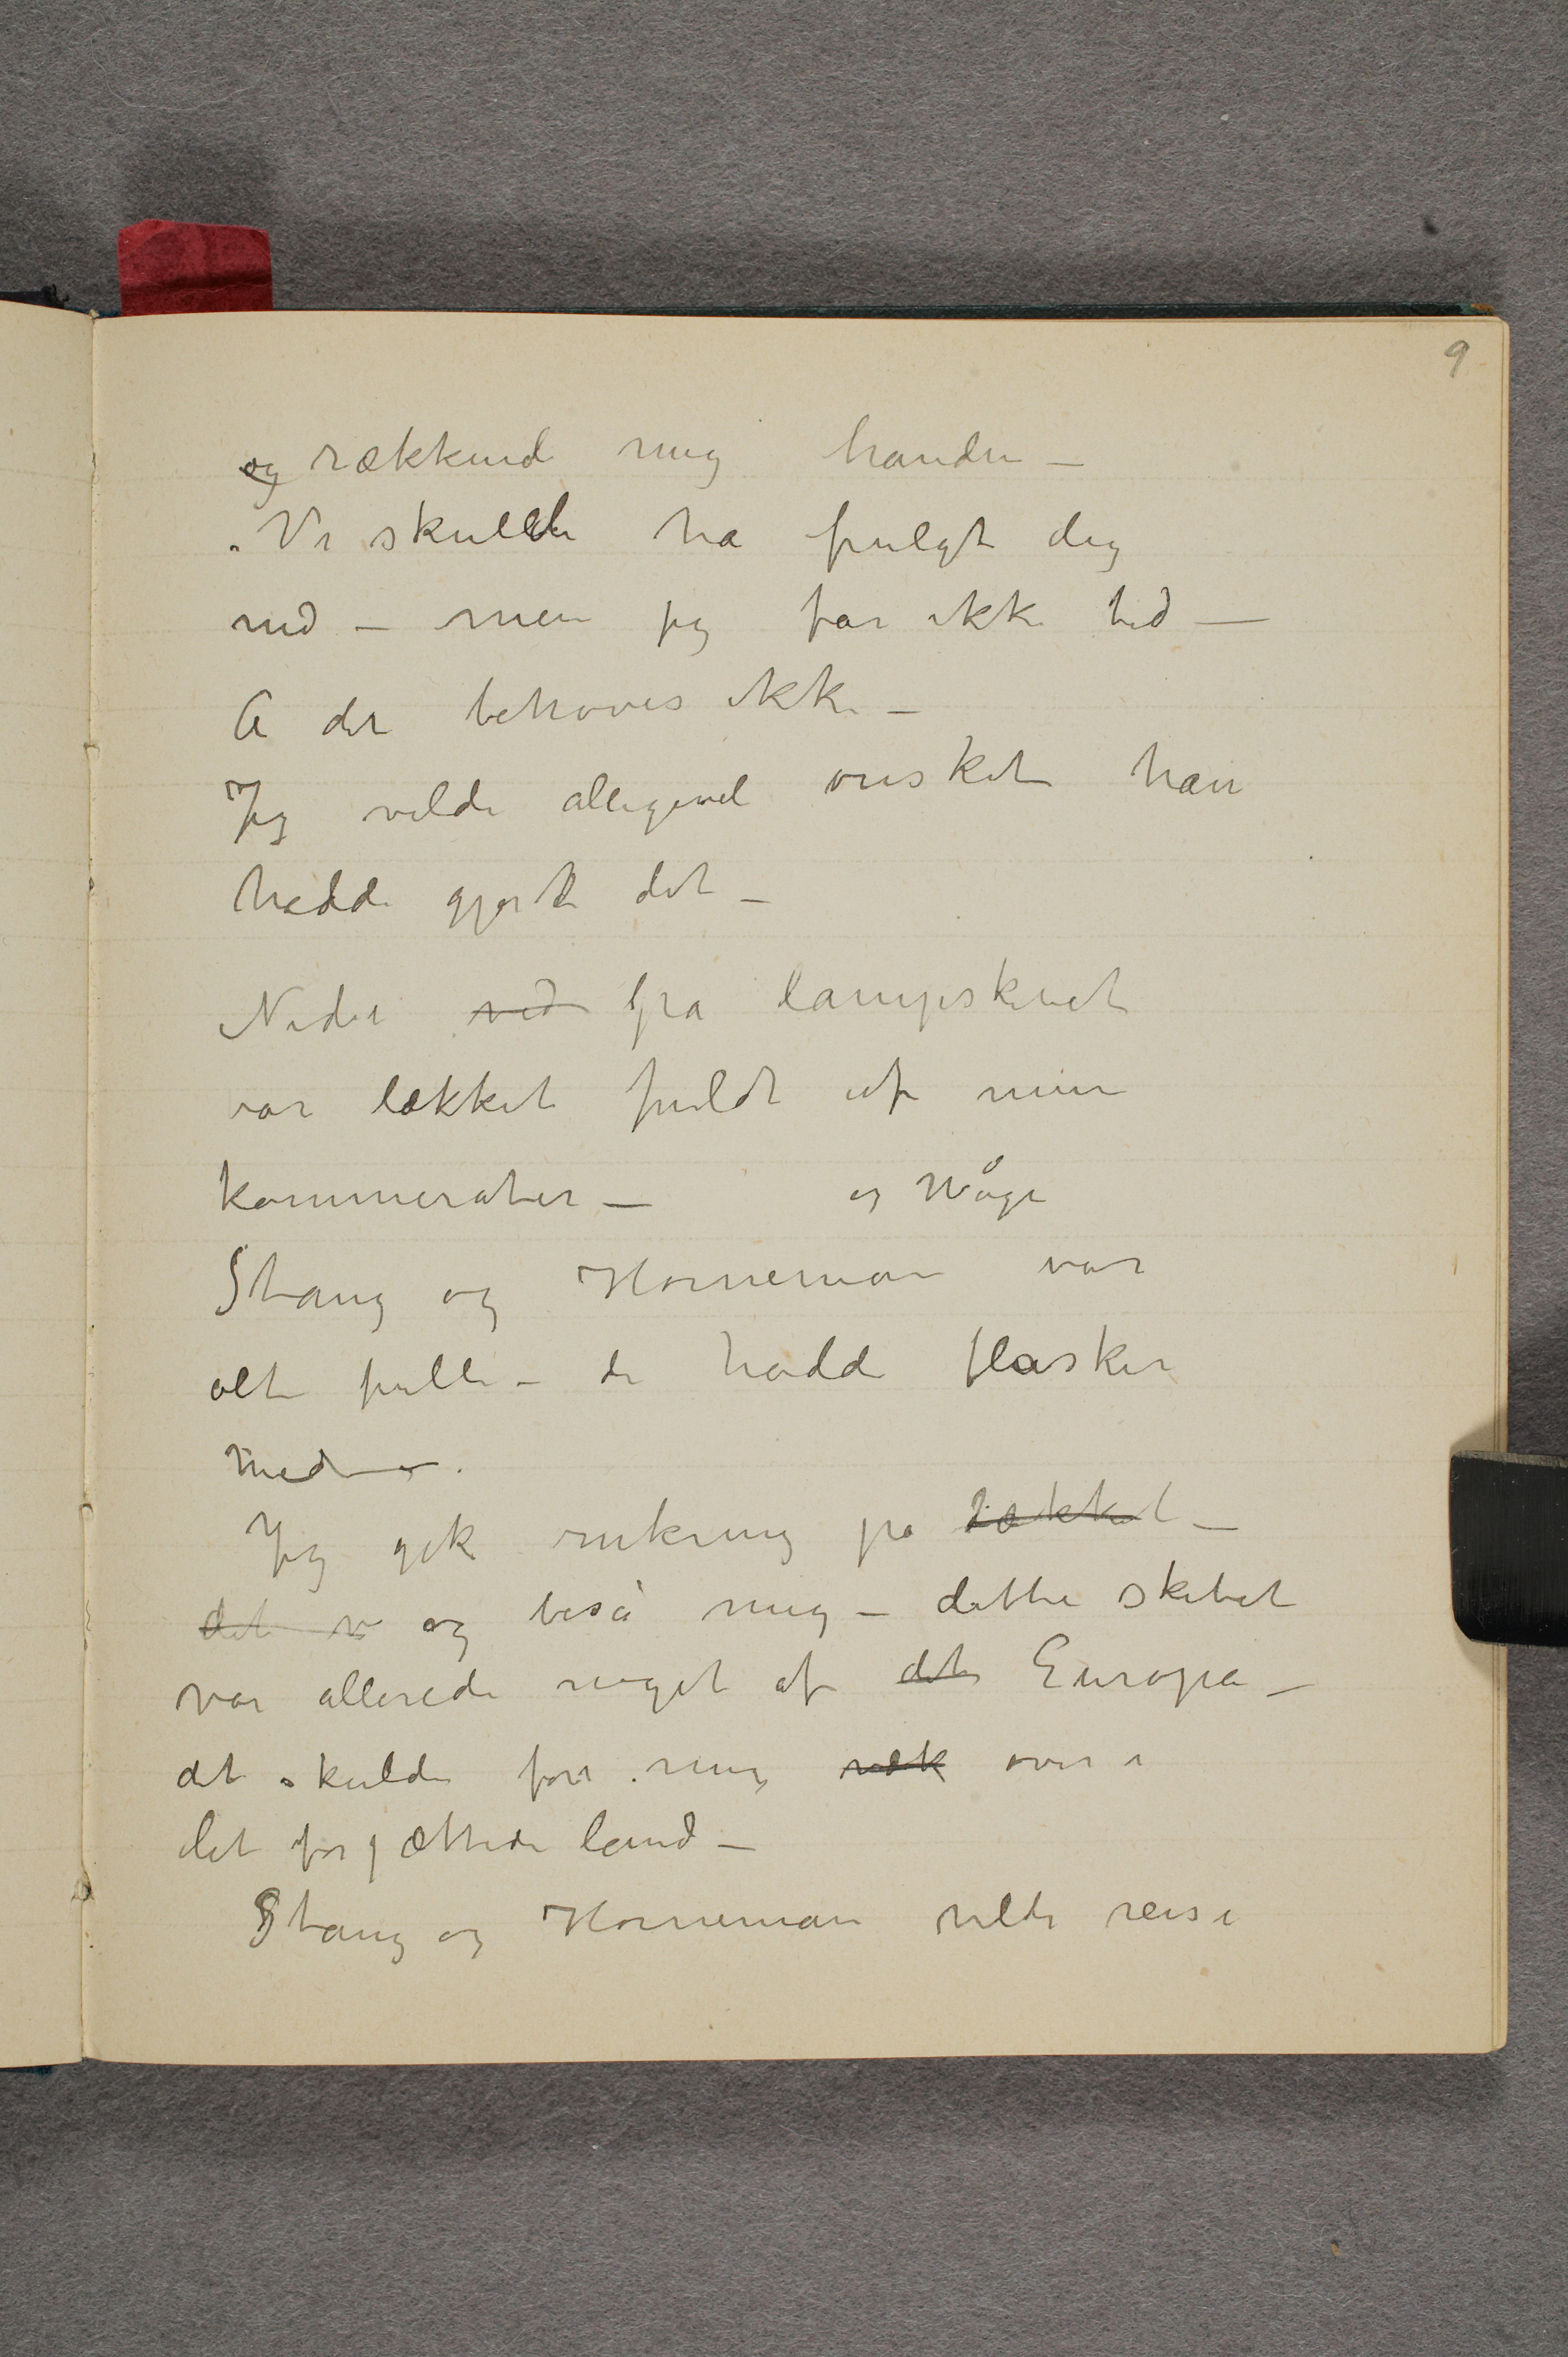 9
og rækkend mig handen –
Vi skulde ha fulgt dig
ned – men jeg far ikke tid –
A det behøves ikke –
Jeg vilde alligevel ønsket han
hadde gjort det –
Nede ved på dampskibet
var dækket fuldt af mine
kammerater –
og Wåge
Stang og Horneman var
alt fulle – de hadde flasker
med –.
Jeg gik omkring på dækket –
det v og beså mig – dette skibet
var allerede noget af det Europa –
det skulde føre mig væk over i
det forjættede land –
Stang og Horneman vilde reise